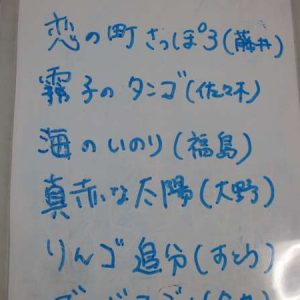 恋の町さっぽろ(藤井)
霧子のタンゴ(佐々木)
海のいのり(福島)
真赤な太陽(大野)
りんご追分(すとう)